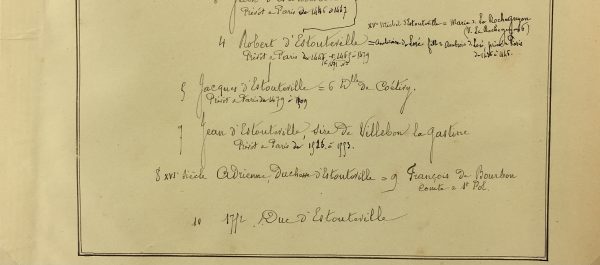 Prévôt de Paris de 1446 à 1447
XVe Michel d'Estouteville = Marie de La Rocheguyon
(V. La Rocheguyon 6)
4 Robert d'Estouteville = Ambroise de Loré fille d'Ambroise de Loré, prévôt de Paris
Prévôt de Paris de 1447 + 1465 à 1479
de 1436 à 1446.
5 Jacques d'Estouteville = 6 Dlle de Coëtivy.
Prévôt de Paris de 1479 à 1509
7 Jean d'Estouteville, sire de Villebon, la Gastine
Prévôt de Paris de 1526 à 1553.
8 XVIe siècle Adrienne, Duchesse d'Estouteville = 9 François de Bourbon
Comte de St Pol.
10 1752 Duc d'Estouteville